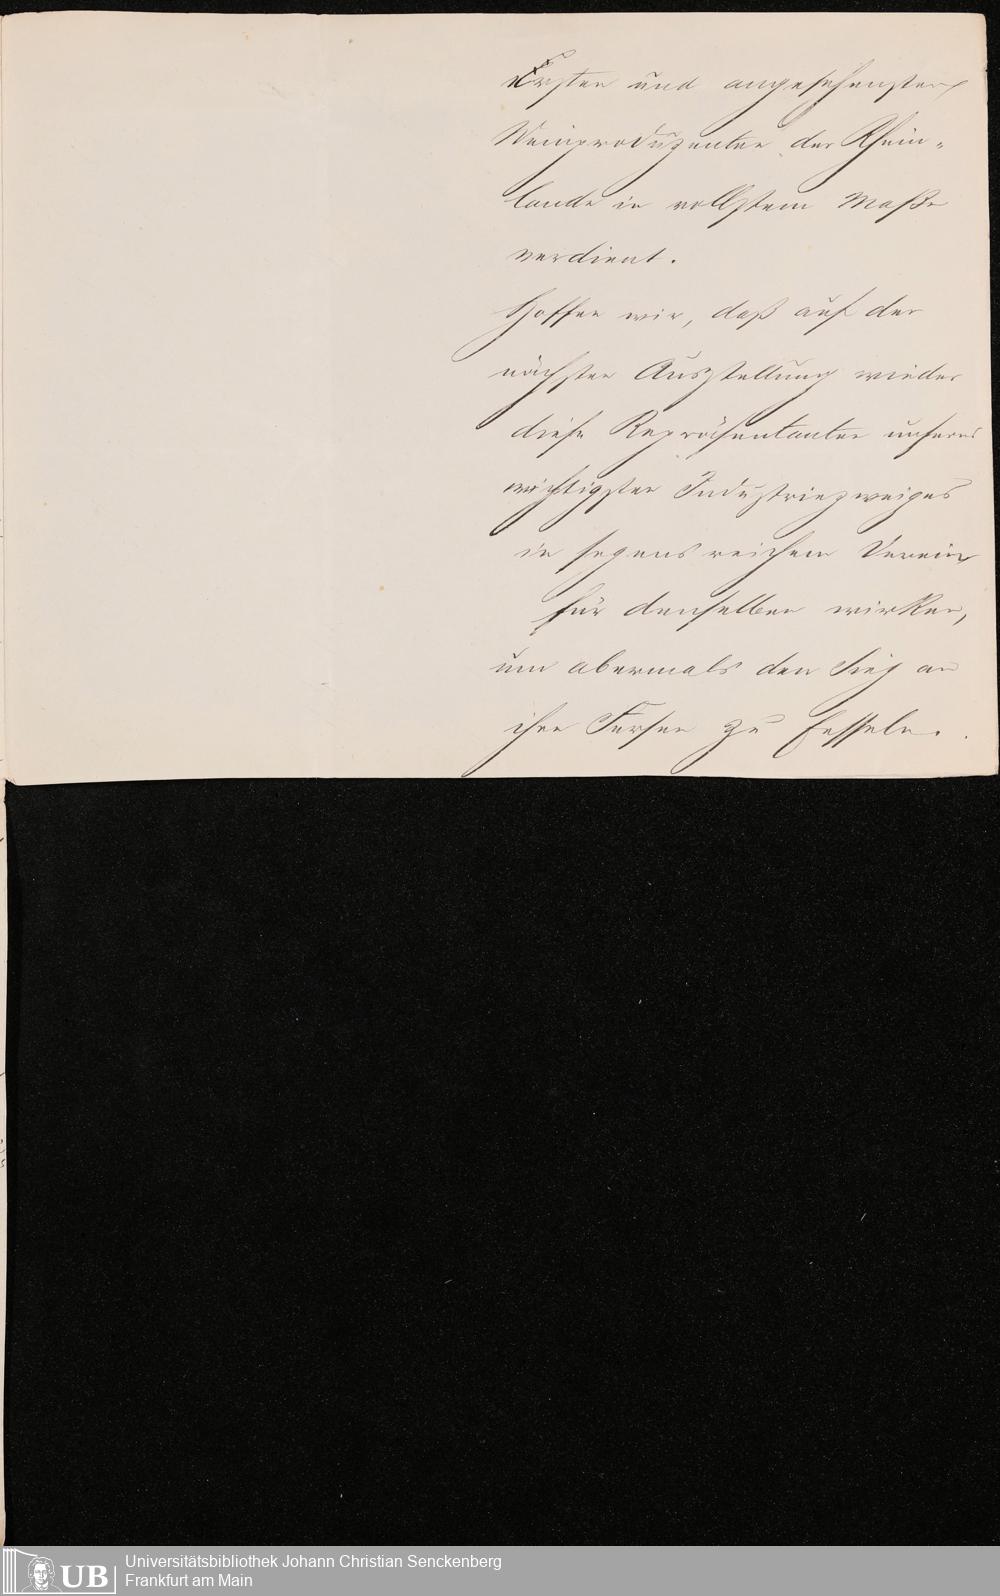 Ersten und angesehensten
Weinproduzenten der Rhein-
lande in vollstem Maße
verdient.
Hoffen wir, daß auf der
nächsten Ausstellung wieder
diese Repräsentanten unseres
wichtigsten Industriezweiges
in segensreichem Verein
für denselben wirken,
um abermals den Sieg an
ihre Fersen zu fesseln.
UB
Universitätsbibliothek Johann Christian Senckenberg
Frankfurt am Main